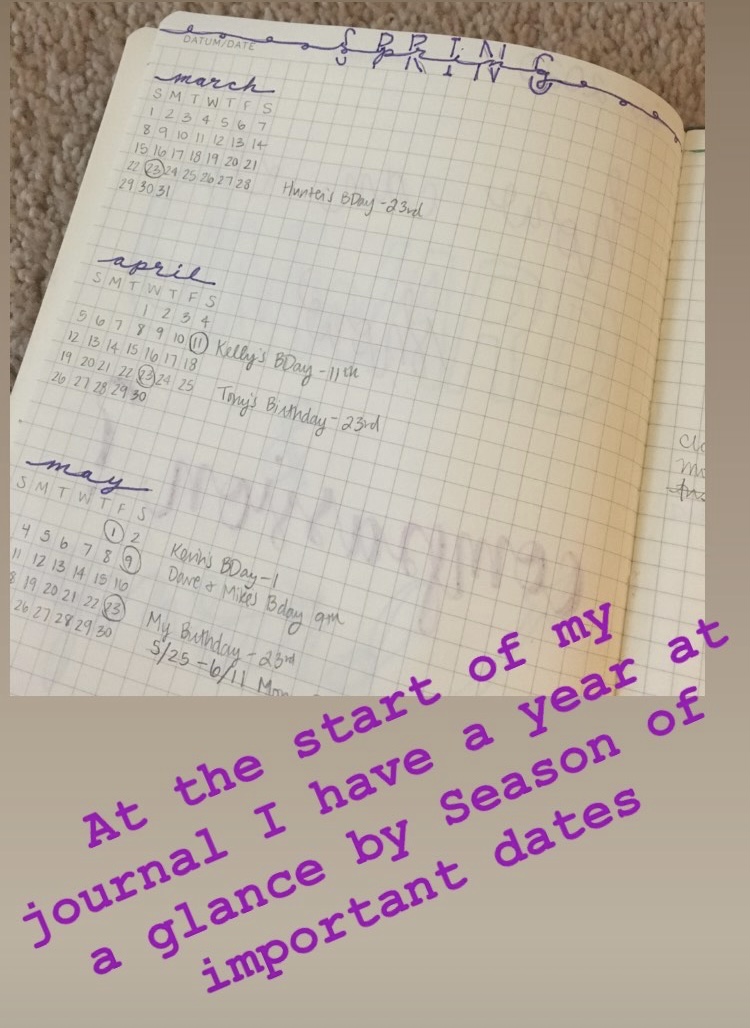 DATUM/DATE
SPRING
march
S M T W T F S
1 2 3 4 5 6 7
8 9 10 11 12 13 14
15 16 17 18 19 20 21
22 23 24 25 26 27 28
29 30 31
Hunter's BDay - 23rd
april
S M T W T F S
1 2 3 4
5 6 7 8 9 10 11 Kelly's BDay - 11th
12 13 14 15 16 17 18
19 20 21 22 23 24 25
26 27 28 29 30
Tony's Birthday - 23rd
may
S M T W T F S
1 2
4 5 6 7 8 9
11 12 13 14 15 16
8 19 20 21 22 23
26 27 28 29 30
Kevin's BDay - 1
Dave & Mike's Bday 9th
My Birthday - 23rd
5/25 - 6/11 Mom
compassion
At the start of my
journal I have a year at
a glance by Season of
important dates